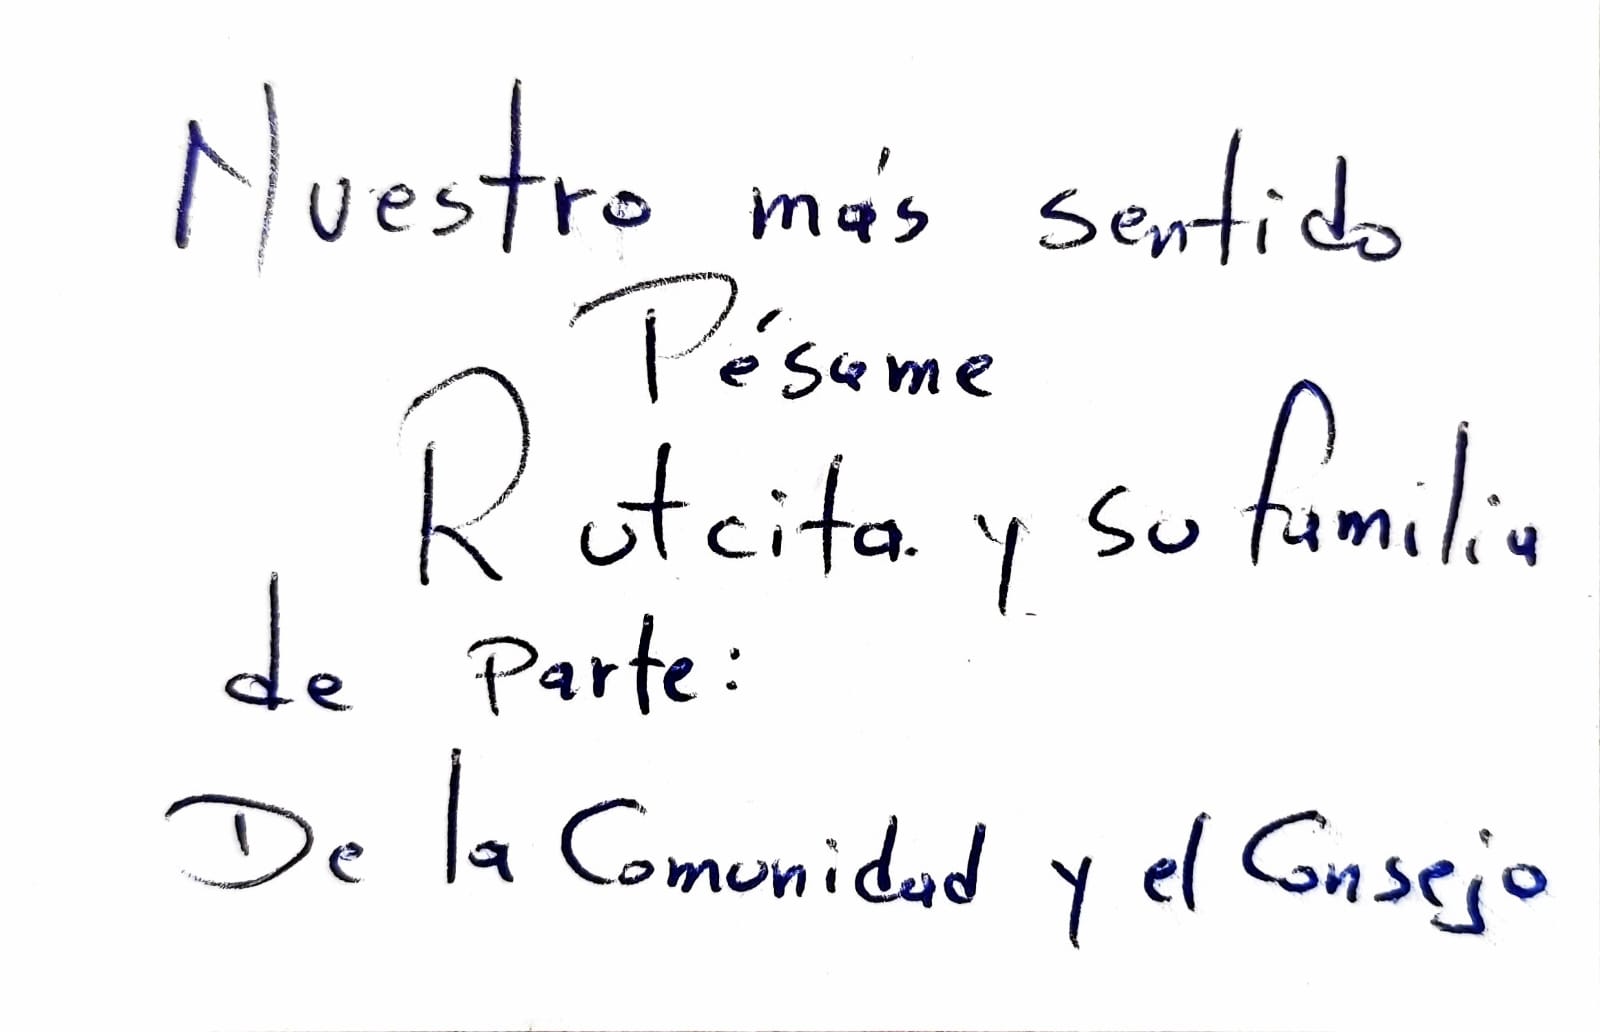 Nuestro más sentido
Pésame
Rutcita. y su familia
de Parte:
De la Comunidad y el Consejo